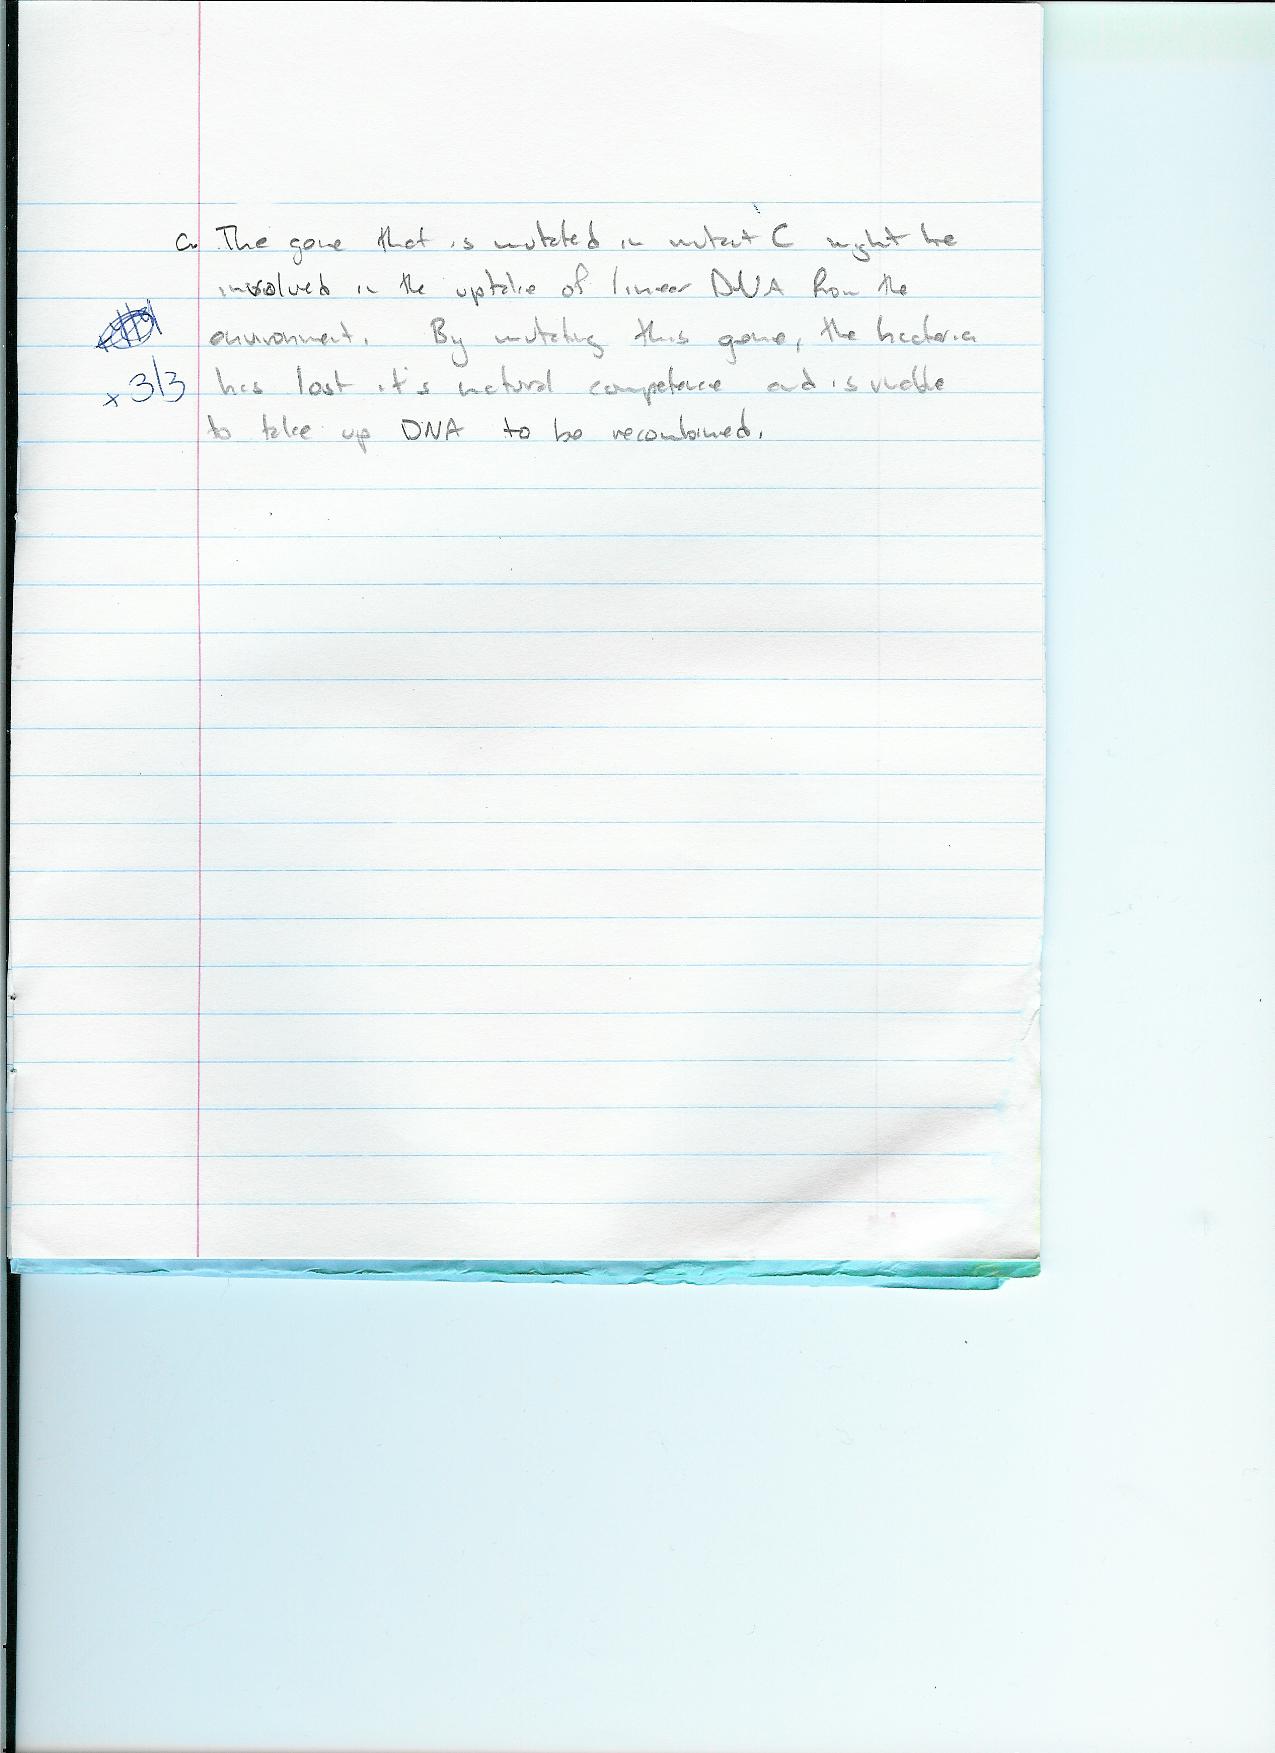 c. The gene that is mutated in mutant C might be
involved in the uptake of linear DNA from the
environment. By mutating this gene, the bacteria
x 3/3 has lost it's natural competence and is unable
to take up DNA to be recombined.